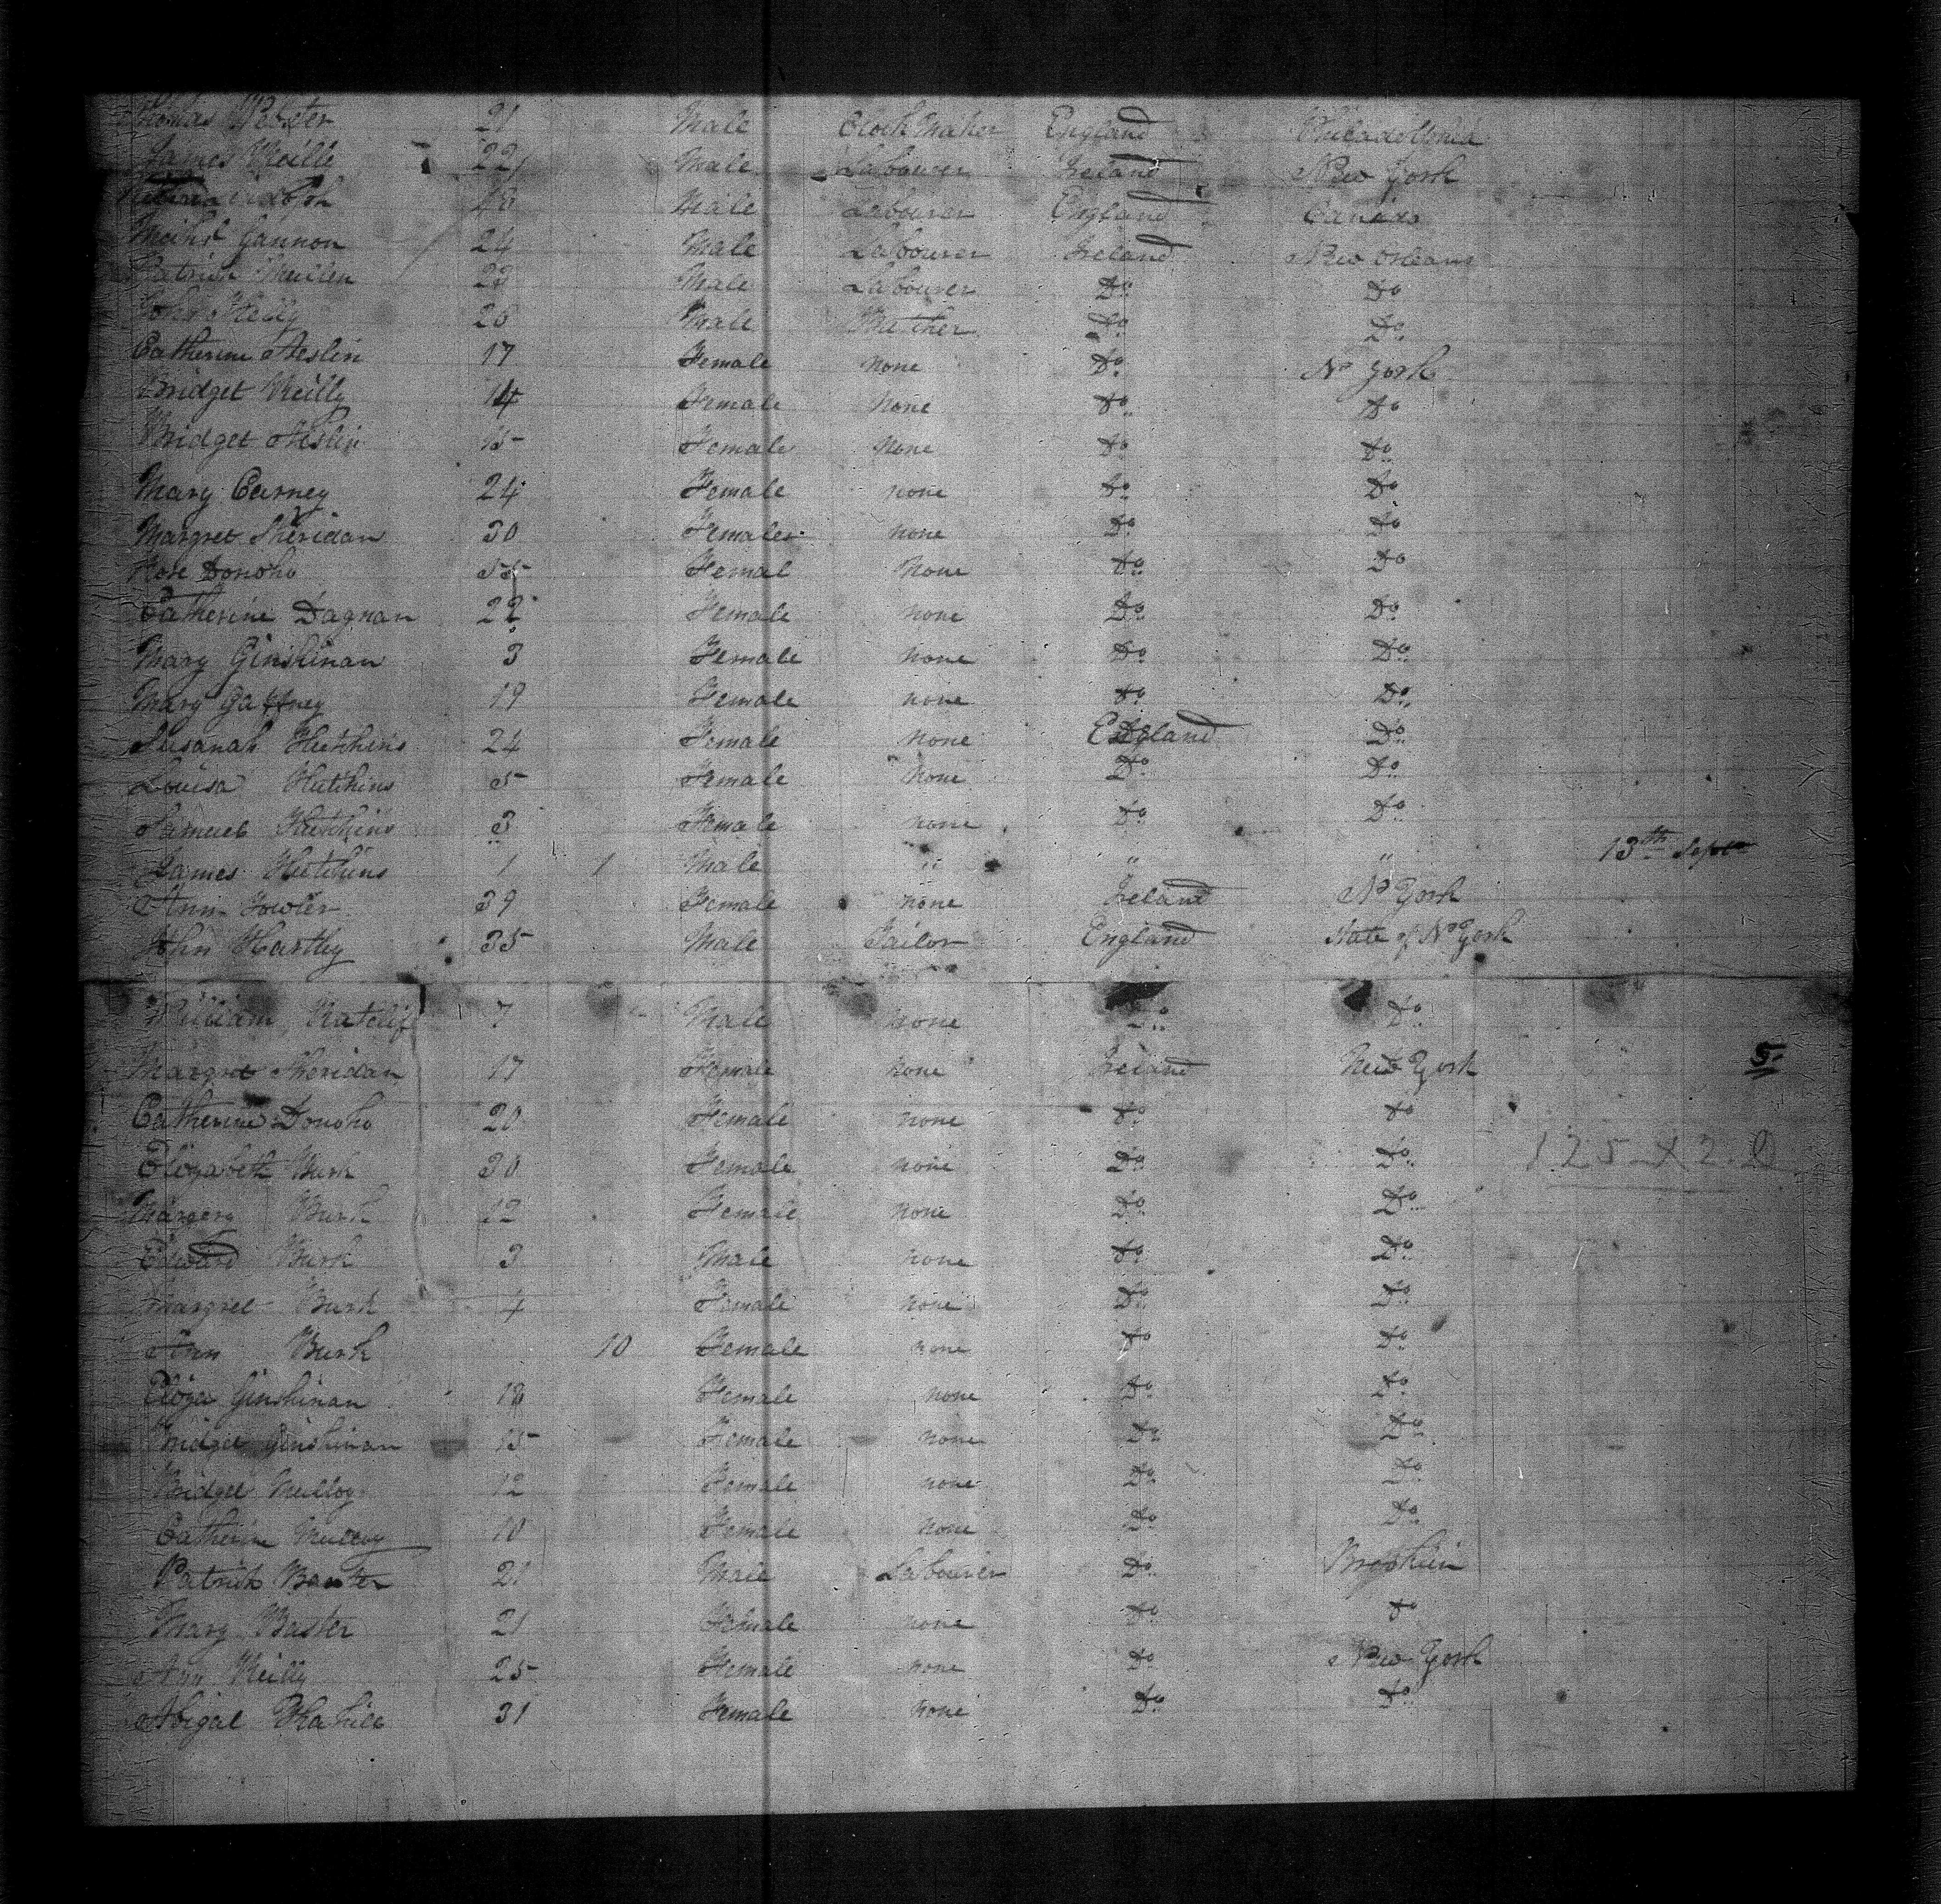 Thomas Webster 21 Male Clock Maker England Philadelphia
James Reille 22 Male Labourer Ireland New York
Male Labourer England Canada
Gannon 24 Male Labourer Ireland New Orleans
Patrick 23 Male Labourer Do Do
John Reilly 26 Male Do Do
Catherine Heslin 17 Female None Do N York
Bridget Reilly 14 Female None Do Do
Bridget Heslin 15 Female None Do Do
Mary Carney 24 Female none Do Do
Margret Sheridan 30 Female none Do Do
Rose Donoho 55 Femal None Do Do
Catherine Dagnan 22 Female none Do Do
Mary Ginshinan 3 Female None Do Do
Mary Gaffney 19 Female none Do Do
Susanah Hutchins 24 Female None England Do
Louisa Hutchins 5 Female none Do Do
Samuel Hutchins 3 Female none Do Do
James Hutchins 1 1 Male " " " 13th Sept
Ann Fowler 39 Female none Ireland No York
John Hartley 35 Male Tailor England State of No York
William Ratclif 7 Male none Do Do
Margret Sheridan 17 Female none Ireland New York 5
Catherine Donoho 20 Female none Do Do
Elizabeth Burk 30 Female none Do Do 125
Margery Burk 12 Female none Do Do
Edward Burk 3 Male none Do Do
Margret Burk 4 Female none Do Do
Ann Burk 10 Female none Do Do
Eliza Ginshinan 18 Female none Do Do
Bridget Ginshinan 15 Female none Do Do
Bridget 12 Female none Do Do
Catherin 10 Female none Do Do
Patrick Baxter 21 Male Labourer Do
Mary Baxter 21 Female none Do Do
Ann Reilly 25 Female none Do New York
Abigal 31 Female none Do Do